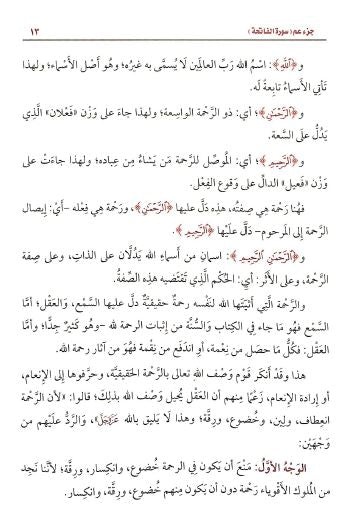 جزء عم (سورة الفاتحة) ١٣
و﴿اللَّهِ﴾: اسْمُ الله رَبِّ العالَمِين لَا يُسمَّى به غيرُه؛ وهُو أَصْل الأَسْماء؛ ولهذا
تَأْتي الأسماءُ تابِعةً لَه.
و﴿الرَّحْمَنِ﴾؛ أي: ذو الرَّحْمة الواسِعة؛ ولهذا جاءَ على وَزْن «فَعْلان» الَّذي
يَدُلُّ على السَّعة.
و﴿الرَّحِيمِ﴾؛ أي: المُوصِّل للرَّحمة مَن يَشاءُ مِن عِباده؛ ولهذا جاءَتْ على
وَزْن «فَعيل» الدالِّ على وُقوع الفِعْل.
فهُنا رَحْمة هي صِفتُه، هذِه دَلَّ عليها ﴿الرَّحْمَنِ﴾، ورَحْمة هِي فِعْله -أَيْ: إيصال
الرَّحْمة إلى المَرحوم- دَلَّ علَيْها ﴿الرَّحِيمِ﴾.
و﴿الرَّحْمَنِ الرَّحِيمِ﴾: اسمانِ من أَسماءِ الله يَدُلَّان على الذاتِ، وعلى صِفة
الرَّحْمة، وعلى الأَثَر؛ أي: الحُكْم الَّذي تَقتَضيه هذه الصِّفةُ.
والرَّحْمة الَّتي أَثبَتَها الله لنَفْسه رحمةٌ حقيقيَّةٌ دلَّ عليها السَّمْع، والعَقْل؛ أمَّا
السَّمْع فهُو ما جاء في الكِتاب والسُّنَّة من إثبات الرحمة لله -وهُو كَثيرٌ جِدًّا-؛ وأمَّا
العَقْل: فكُلُّ ما حصَل من نِعْمة، أو اندَفَع من نِقْمة فهُوَ من آثار رحمة الله.
هذا وقَدْ أَنكَر قَوْم وَصْف الله تعالى بالرَّحْمة الحَقيقيَّة، وحرَّفوها إلى الإنعام،
أو إرادة الإنعام، زَعْمًا مِنهم أن العَقْل يُحيل وَصْف الله بذلِكَ؛ قالوا: «لأن الرَّحمة
انعِطاف، ولِين، وخُضوع، ورِقَّة؛ وهذا لا يَليق بالله عَزَّوَجَلَّ»، والرَّدُّ علَيْهم من
وَجْهَيْن:
الوَجْهُ الأوَّلُ: مَنْعُ أن يَكون في الرحمة خُضوع، وانكِسار، ورِقَّة؛ لأنَّنا نَجِد
من المُلوك الأَقوياء رَحْمة دون أن يَكون مِنهم خُضوع، ورِقَّة، وانكِسار.